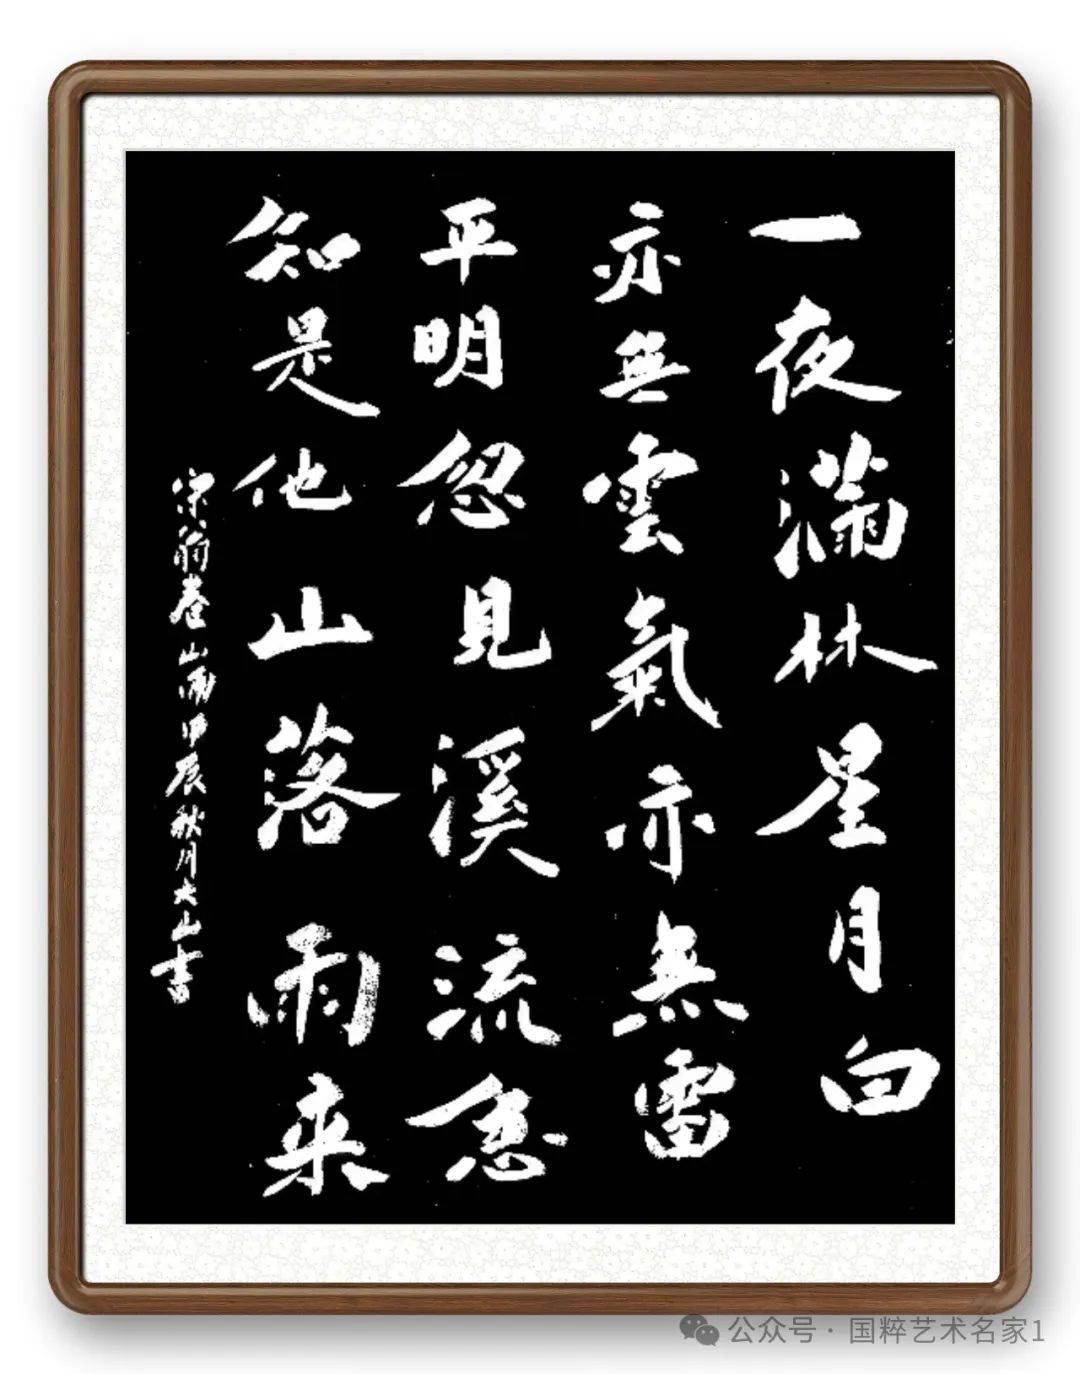 一夜满林星月白
亦無雲氣亦無雷
平明忽見溪流急
知是他山落雨来
宋翁卷山雨甲辰秋月大山書
公众号 · 国粹艺术名家1